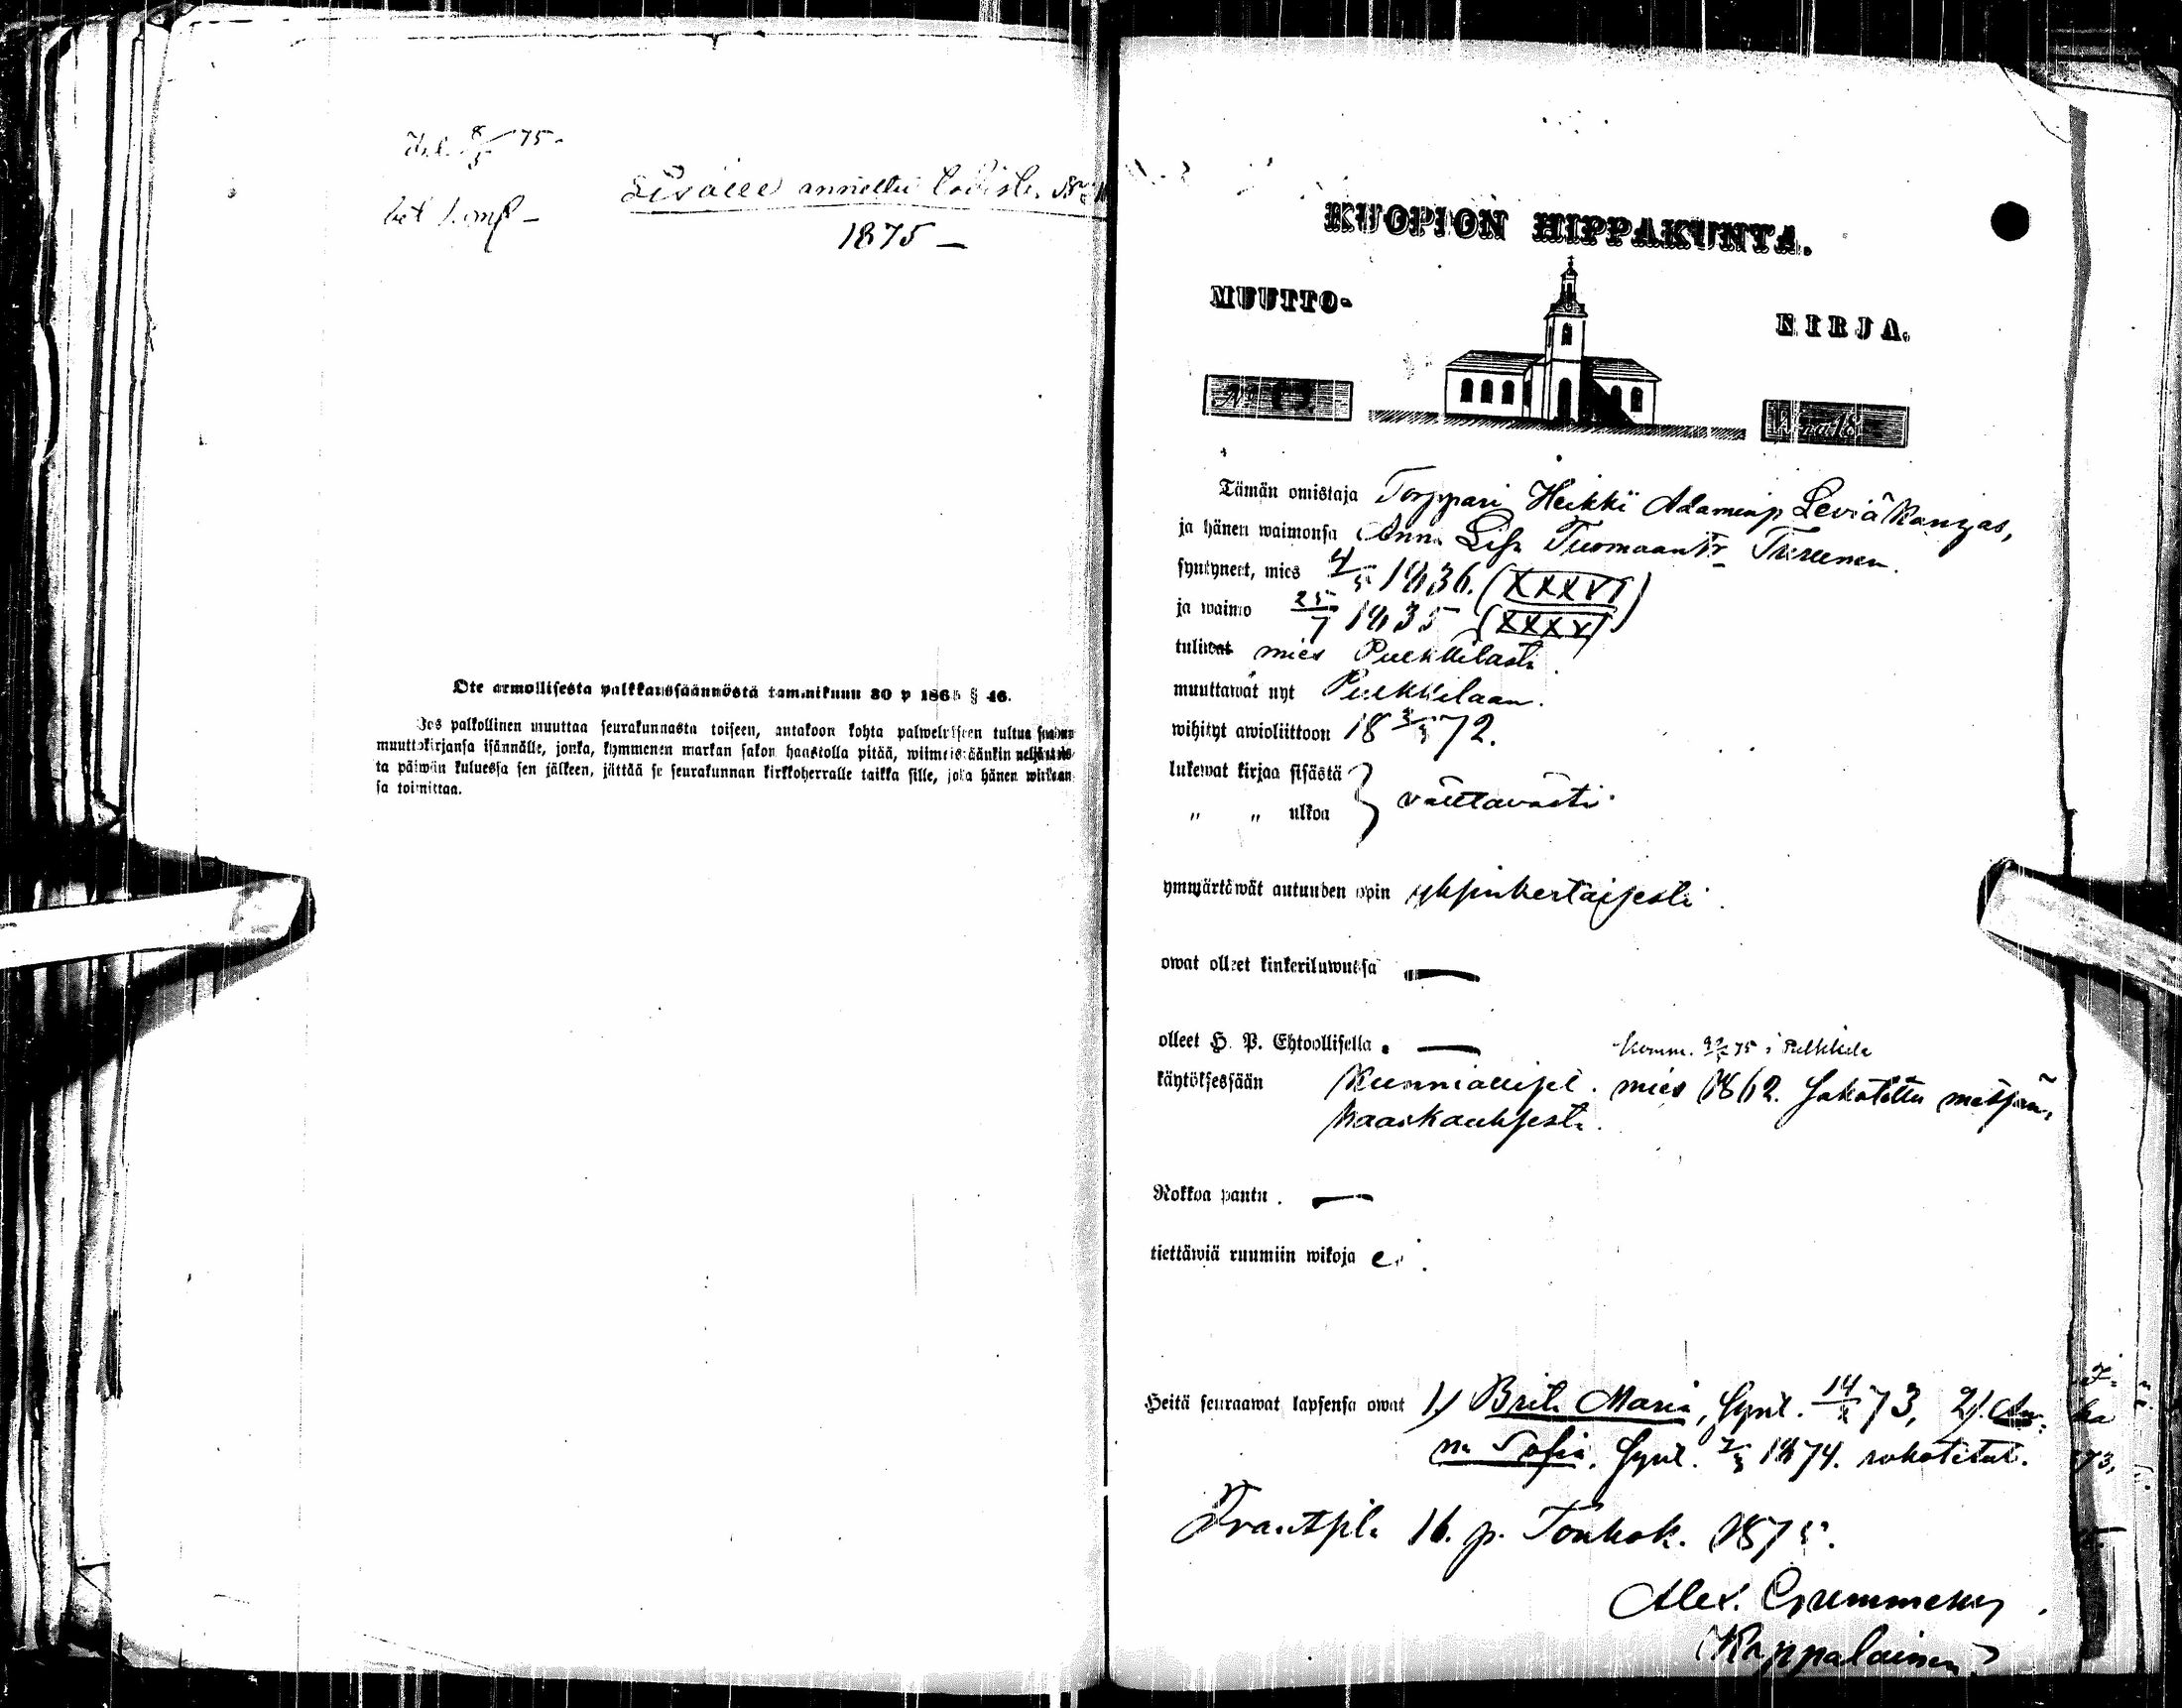 8/5 75.
1875 —
Ote armollisesta palkkaussäännöstä tammikuun 30 p 1865 § 46.
Jos palkollinen muuttaa seurakunnasta toiseen, antakoon kohta palwelukseen tultua
muuttokirjansa isännälle, jonka, kymmenen markan sakon haastolla pitää, wiimeistäänkin neljäntois
ta päiwän kuluessa sen jälkeen, jättää se seurakunnan kirkkoherralle taikka sille, joka hänen wirkaan
sa toimittaa.
KUOPION HIPPAKUNTA.
MUUTTO-
KIRJA.
No
Wna 18
Tämän omistaja Torppari Heikki Adaminp Leviäkangas,
ja hänen waimonsa Anna Lisa Tuomaantr
syntyneet, mies 4/5 1836. (XXXVI)
ja waimo 25/7 1835 (XXXV)
tuliwat mies Pulkkilasta.
muuttawat nyt Pulkkilaan.
wihityt awioliittoon 18 3/3 72.
lukewat kirjaa sisästä
" " ulkoa } välttävästi.
ymmärtäwät autuuden opin yksinkertaisesti.
owat olleet kinkeriluwussa —
olleet H. P. Ehtoollisella . —
Komm. 75 i Pulkkila
käytöksessään Kunnialliset. mies 1862. Sakotettu metsän=
haaskauksesta.
Rokkoa pantu . —
tiettäwiä ruumiin wikoja ei.
Heitä seuraawat lapsensa owat 1.) Brita Maria, synt. 14/X 73, 2). An=
na Sofia. synt. 1874. rokotetut.
Frantsila 16. p. Toukok. 1875.
Alex.
Kappalainen.